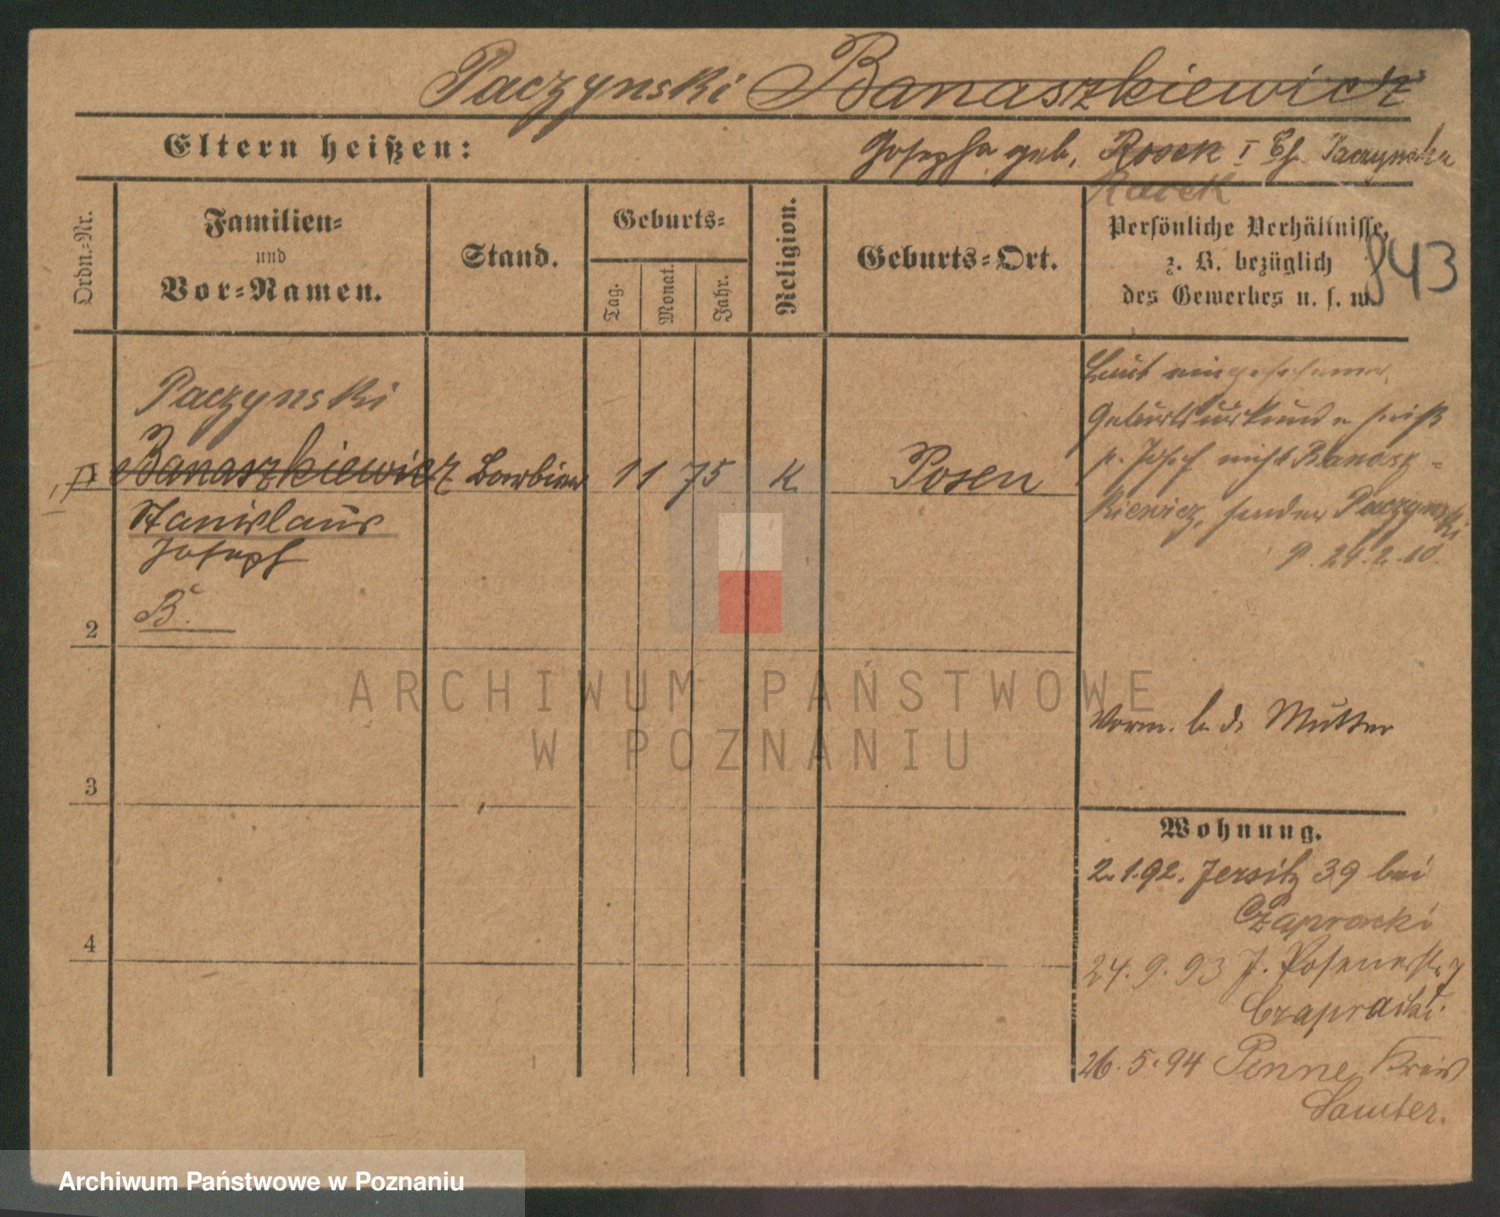 Paczynski Banaszkiewicz
Eltern heißen:
Josepha geb. Rosek I Eh. Paczynska
Racek
Ordn.-Nr.
Familien-
und
Vor-Namen.
Stand.
Geburts-
Tag.
Monat.
Jahr.
Religion.
Geburts-Ort.
Persönliche Verhältnisse,
z. B. bezüglich
des Gewerbes u. s. w.
843
Paczynski
1 Banaszkiewicz Barbier 11 75 K. Posen
Stanislaus
Joseph
B.
2
3
4
Laut eingesehener
Geburtsurkunde heißt
p. Josef nicht Banasz-
kiewicz, sondern Paczynski
P. 24.2.10.
Vorm. b. d. Mutter
Wohnung.
2.1.92. Jersitz 39 bei
Czaprocki
24.9.93 J. Posenerstr. 7
Czapracki
26.5.94 Pinne Kreis
Samter.
ARCHIWUM PAŃSTWOWE
W POZNANIU
Archiwum Państwowe w Poznaniu